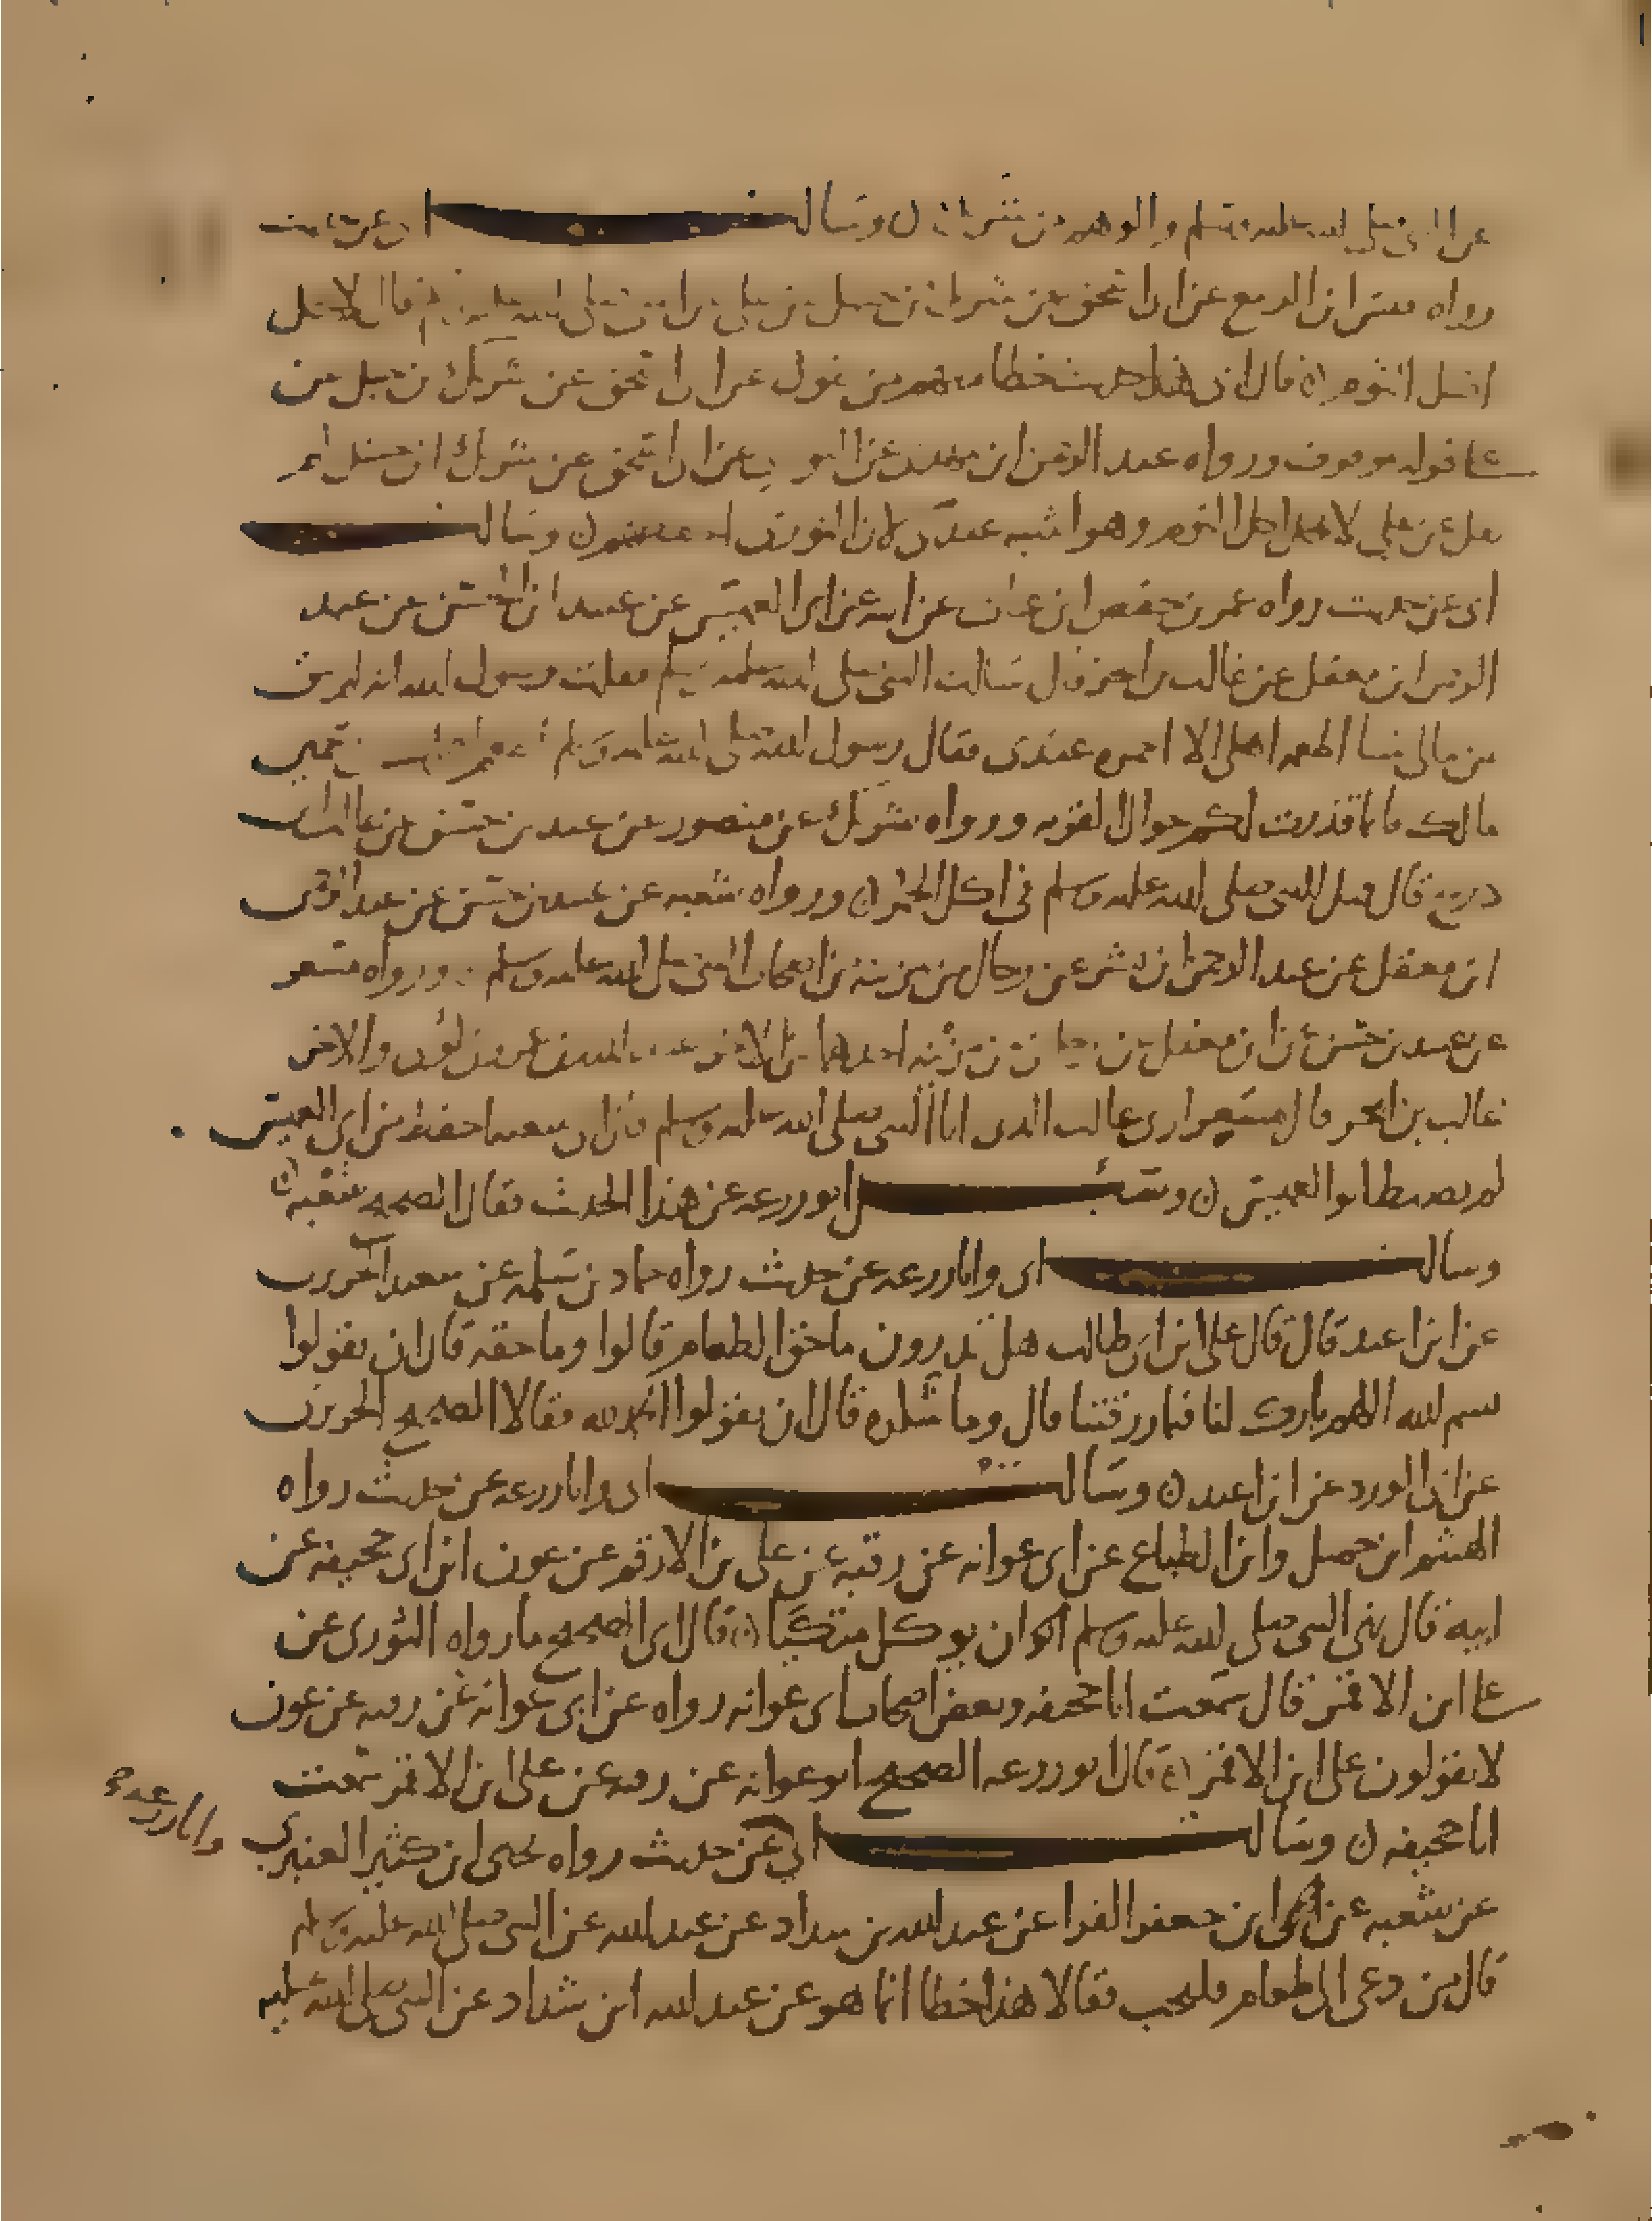 عن النبي صلى الله عليه وسلم والوهم من شريك ن وسالت ابي عن حديث
رواه قيس ابن الربيع عن ابي اسحق عن شريك بن حنبل عن علي عن النبي صلى الله عليه وسلم قال لا يحل
اكل الثوم ن قال ابي هذا حديث خطا منهم من يقول عن ابي اسحق عن شريك بن حنبل عن
علي قوله موقوف ورواه عبد الرحمن ابن مهدي عن الثوري عن ابي اسحق عن شريك ابن حنبل
عن علي لا يحل اكل الثوم وهو اشبه عندي لان الثوري احفظهم ن وسالت
ابي عن حديث رواه عمر بن حفص ابن غياث عن ابيه عن ابي العميس عن عبيد ابن الحسن عن عبد
الرحمن ابن معقل عن غالب بن ابجر قال سالت النبي صلى الله عليه وسلم فقلت يرسول الله انه لم يبق
من مالي شيا اطعم اهلي الا احمره عندي فقال رسول الله صلى الله عليه وسلم اطعم اهلك من سمين
مالك فانما قذرت لكم جوال القريه ورواه شريك عن منصور عن عبيد بن حسن عن غالب بن
ذريح قال قيل للنبي صلى الله عليه وسلم في اكل الحمر ن ورواه شعبه عن عبيد بن حسن عن عبد الرحمن
ابن معقل عن عبد الرحمن ابن بشر عن رجال من مزينة من اصحاب النبي صلى الله عليه وسلم ورواه مسعر
عن عبيد بن حسن عن ابن معقل عن رجلين من مزينه احدهما عن الاخر عبد الله بن عمرو بن لوي والاخر
غالب بن ابجر قال مسعر ارى غالب الذي اتا النبي صلى الله عليه وسلم قال ابي شعبه احفظ من ابي العميس
لم يضبط ابو العميس ن وسئـل ابو زرعه عن هذا الحديث فقال الصحيح شعبه ن
وسالت ابي وابا زرعه عن حديث رواه حماد بن سلمه عن سعيد الجريري
عن ابن اعبد قال قال علي ابن ابي طالب هل تدرون ما حق الطعام قالوا وما حقه قال ان يقولوا
بسم الله اللهم بارك لنا فيما رزقتنا قال وما شكره قال ان يقولوا الحمد لله فقالا الصحيح الجريري
عن ابي الورد عن ابن اعبد ن وسالت ابي وابا زرعه عن حديث رواه
الهيثم ابن جميل وابن الطباع عن ابي عوانه عن رقبه عن علي بن الاقمر عن عون ابن ابي جحيفه عن
ابيه قال نهى النبي صلى الله عليه وسلم اكوان يوكل متكيا ن قال ابي الصحيح ما رواه الثوري عن
علي ابن الاقمر قال سمعت ابا جحيفه وبعض اصحاب ابي عوانه رواه عن ابي عوانه عن رقبه عن عون
لا يقولون علي ابن الاقمر ن قال ابو زرعه الصحيح ابو عوانه عن رقبه عن علي ابن الاقمر سمعت
ابا جحيفه ن وسالت ابي عن حديث رواه يحيى ابن كثير العنبري
وابا زرعه صح
عن شعبه عن ابن ابي جعفر الفرا عن عبد الله بن شداد عن عبد الله عن النبي صلى الله عليه وسلم
قال من دعي الى طعام فليجب فقالا هذا خطا انما هو عن عبد الله ابن شداد عن النبي صلى الله عليه